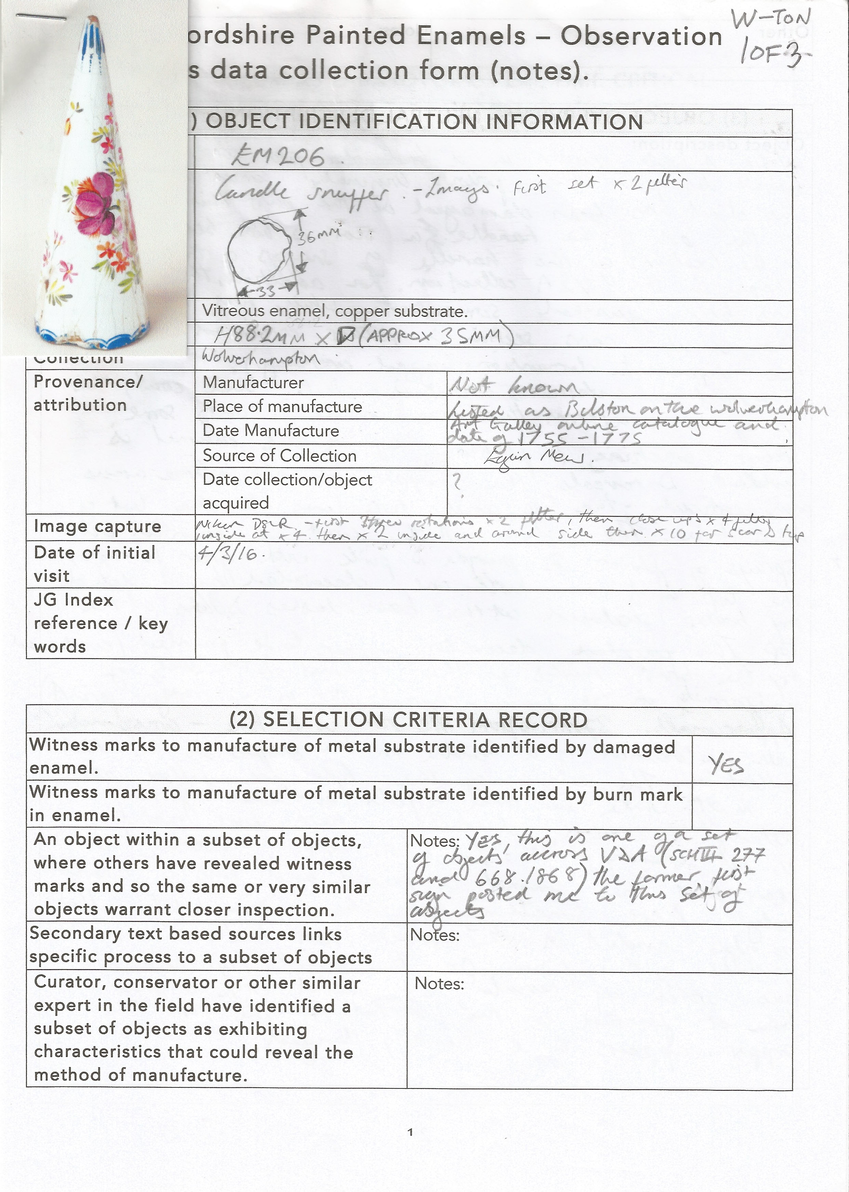 ordshire Painted Enamels – Observation
W-TON
s data collection form (notes).
1 OF 3
) OBJECT IDENTIFICATION INFORMATION
EM206.
Candle snuffer. - Images. first set x 2 filter
36mm
33
Vitreous enamel, copper substrate.
H88.2MM X (APPROX 35MM)
Collection
Wolverhampton
Provenance/
attribution
Manufacturer
Not known
Place of manufacture
Listed as Bilston on the wolverhampton
Date Manufacture
Art Gallery online catalogue and
date of 1755 - 1775
Source of Collection
Date collection/object
acquired
?
Image capture
Nikon DSLR - first three rotations x 2 filter, then close up's x 4 filter
inside at x 4 then x 2 inside and around side then x 10 for
Date of initial
visit
4/3/16.
JG Index
reference / key
words
(2) SELECTION CRITERIA RECORD
Witness marks to manufacture of metal substrate identified by damaged
enamel.
YES
Witness marks to manufacture of metal substrate identified by burn mark
in enamel.
An object within a subset of objects,
where others have revealed witness
marks and so the same or very similar
objects warrant closer inspection.
Notes: YES, this is one of a set
of objects accross V&A (SCHII 277
and 668.1868) the former first
sign posted me to this set of
objects
Secondary text based sources links
specific process to a subset of objects
Notes:
Curator, conservator or other similar
expert in the field have identified a
subset of objects as exhibiting
characteristics that could reveal the
method of manufacture.
Notes:
1